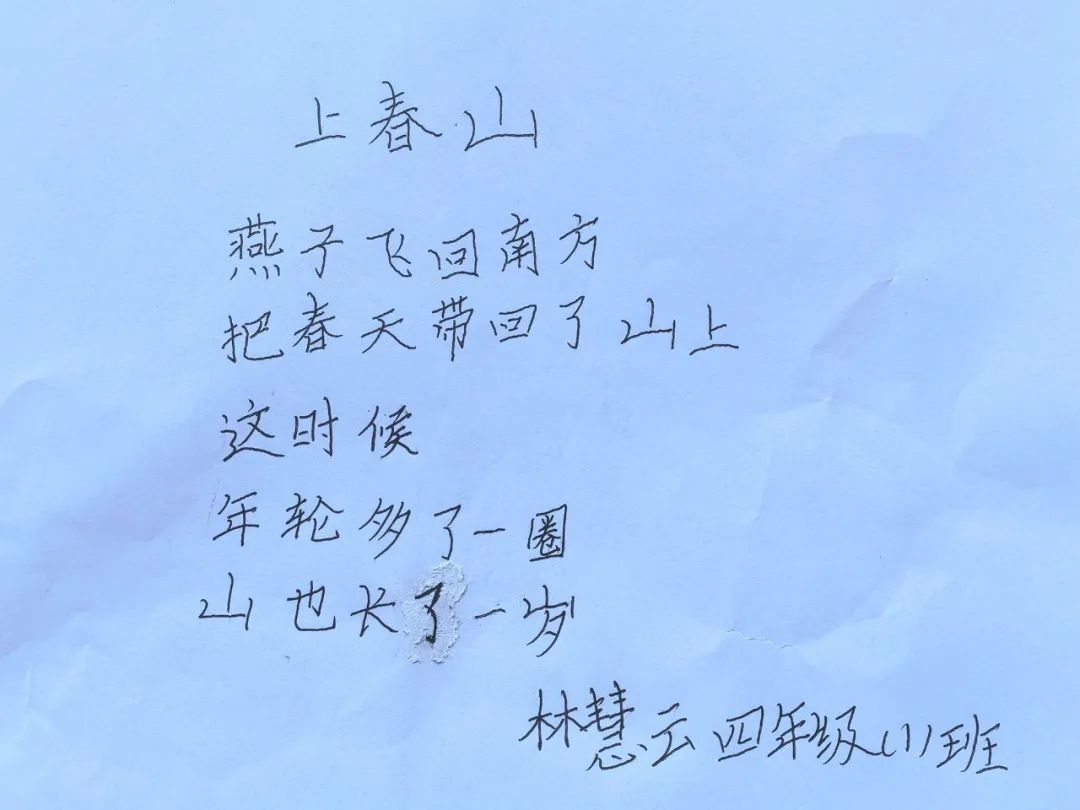 上春山
燕子飞回南方
把春天带回了山上
这时候
年轮多了一圈
山也长了一岁
林慧云四年级(1)班